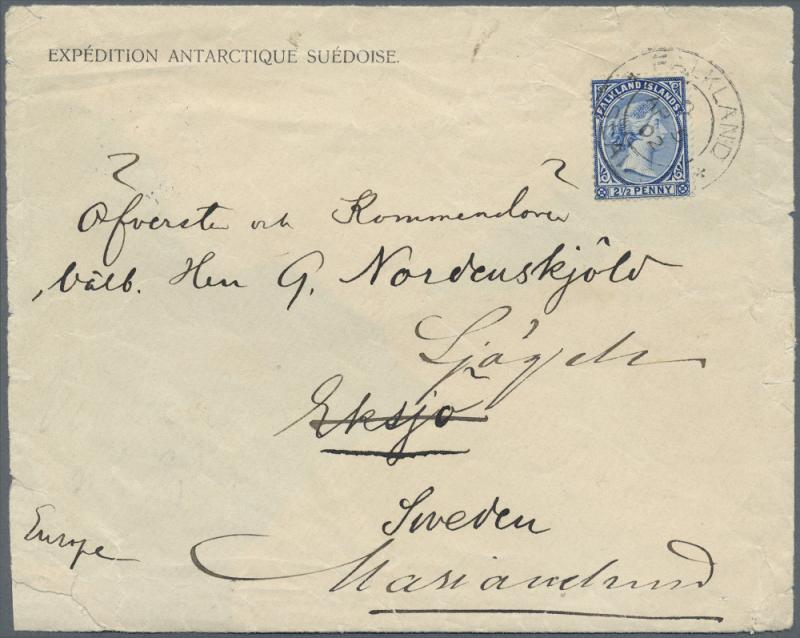 EXPÉDITION ANTARCTIQUE SUÉDOISE.
FALKLAND
FALKLAND ISLANDS
2½ PENNY
Öfversten och Kommendören
Välb. Herr G. Nordenskjöld
Eksjö
Sweden
Europe
Mariannelund